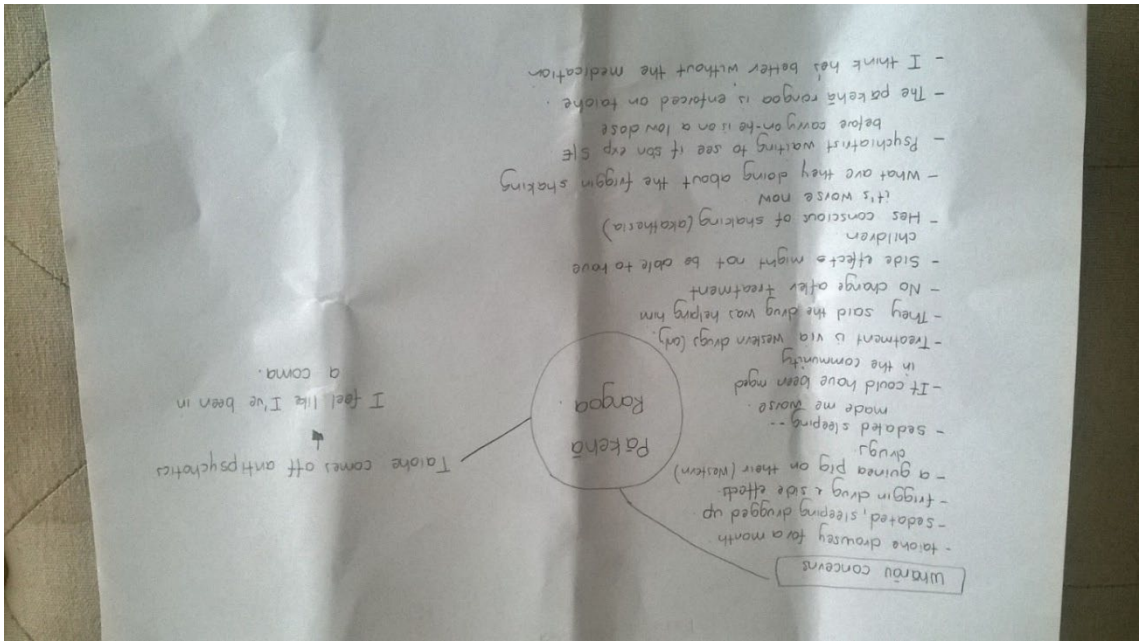 Whānau concerns
- taiohe drowsey for a month
- sedated, sleeping drugged up
- friggin drug & side effects
- a guinea pig on their (western)
drugs
- sedated sleeping --
made me worse.
- It could have been mged
in the community
- Treatment is via western drugs (only.
- They said the drug was helping him
- No change after treatment
- Side effects might not be able to have
children
- Hes conscious of shaking (akathesia)
it's worse now
- What are they doing about the friggin shaking
- Psychiatrist waiting to see if son exp S/E
before carry on-he is on a low dose
- The pākehā rongoa is enforced on taiohe.
- I think he's better without the medication
Pākehā
Rongoa.
Taiohe comes off antipsychotics
I feel like I've been in
a coma.